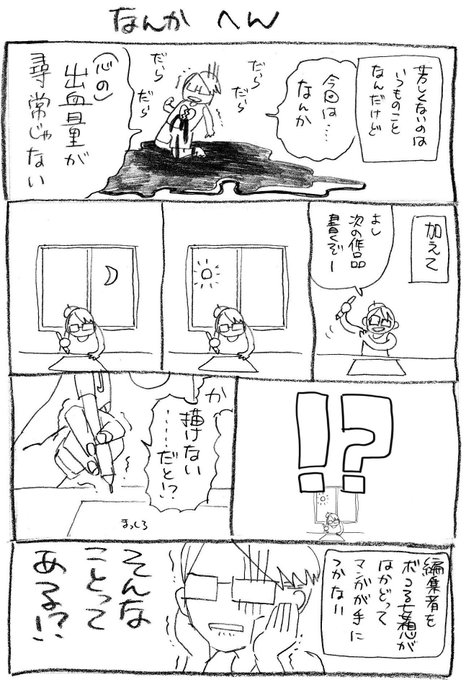 なんか へん
芳しくないのは
いつものこと
なんだけど
今回は…
なんか
だら
だら
だら
だら
(心の)
出血量が
尋常じゃない
加えて
よし
次の作品
書くぞー
!?
か
描けない
……だと!?
まっしろ
編集者を
ボコる妄想が
はかどって
マンガが手に
つかない
そんな
ことって
ある!?